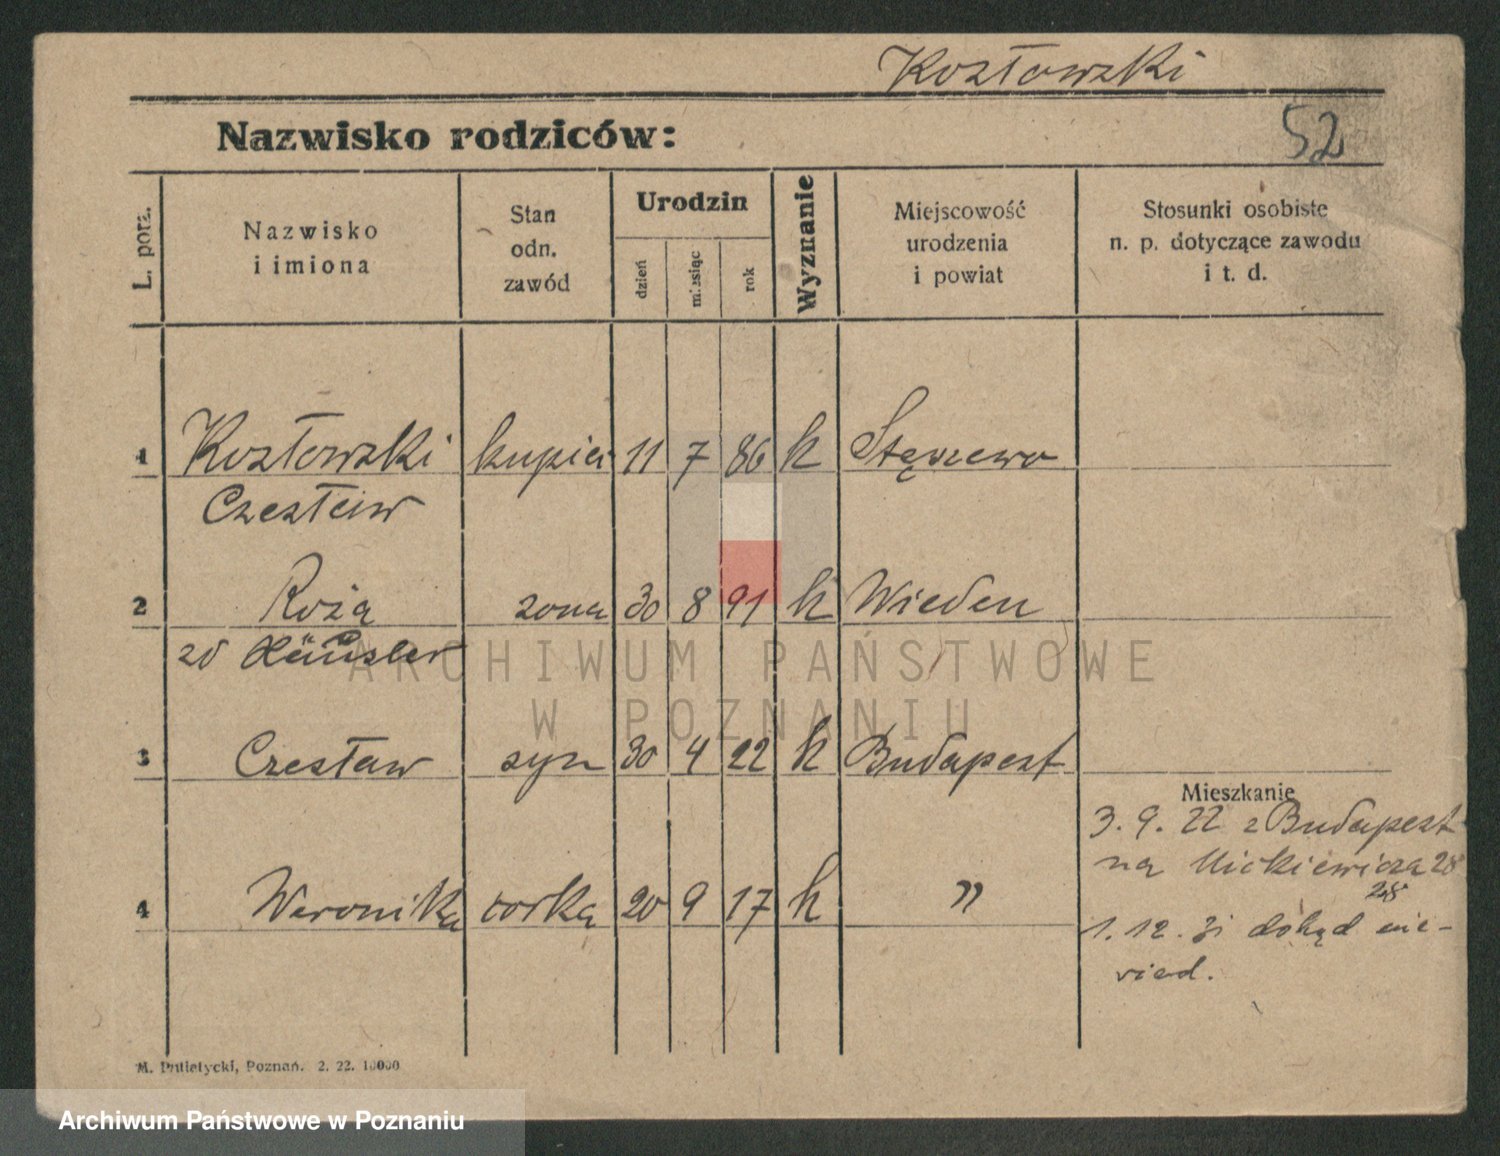 Kozłowski
52
Nazwisko rodziców:
L. porz.
Nazwisko
i imiona
Stan
odn.
zawód
Urodzin
dzień
miesiąc
rok
Wyznanie
Miejscowość
urodzenia
i powiat
Stosunki osobiste
n. p. dotyczące zawodu
i t. d.
1 Kozłowski kupiec 11 7 86 k Stęszewo
Czesław
2 Roża zona 30 8 91 k Wieden
zd Häusler
3 Czesław syn 30 4 22 k Budapest
Mieszkanie
3. 9. 22 z Budapest
na Mickiewicza 28
28
4 Weronika corka 20 9 17 k "
1. 12. 31 dokąd nie-
wiad.
M. Putiatycki, Poznań. 2. 22. 10000
ARCHIWUM PAŃSTWOWE
W POZNANIU
Archiwum Państwowe w Poznaniu